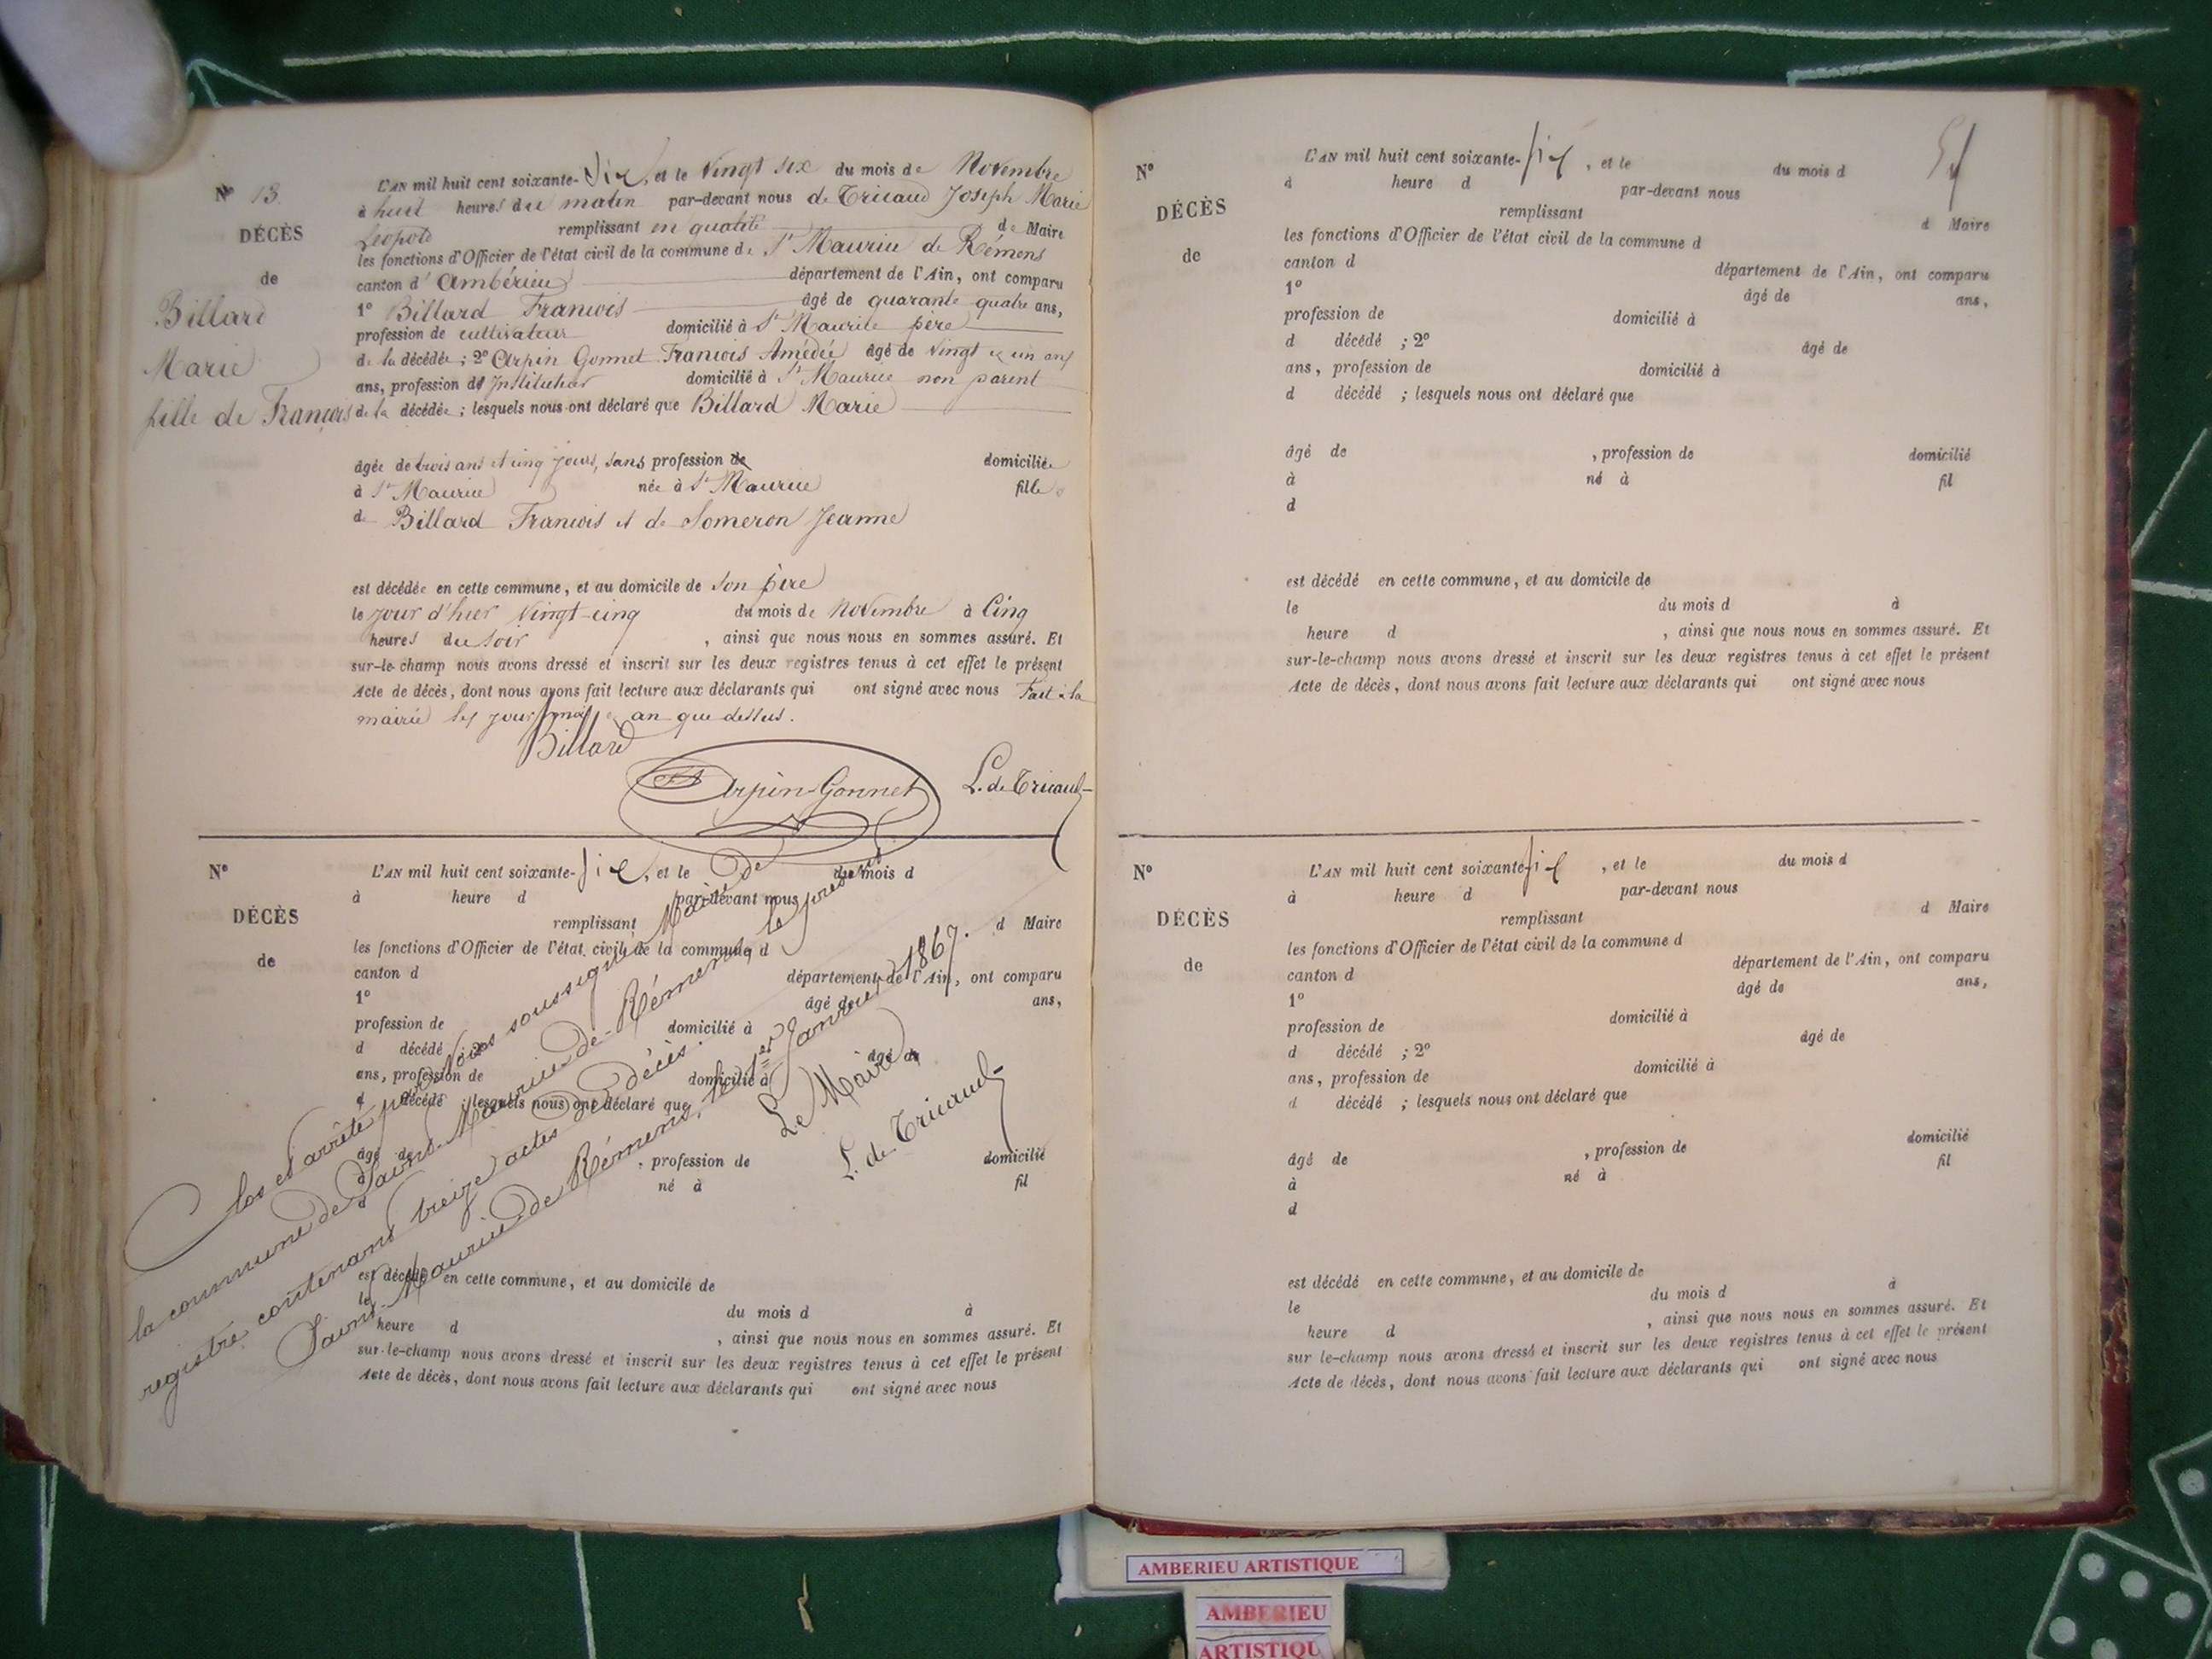 Nº 13.
DÉCÈS
de
Billard
Marie
fille de François
L'AN mil huit cent soixante-six, et le vingt six du mois de Novembre
à huit heures du matin par-devant nous de Tricaud Joseph Marie
Léopold remplissant en qualité de Maire
les fonctions d'Officier de l'état civil de la commune de St Maurice de Rémens
canton d'Ambérieu département de l'Ain, ont comparu
1º Billard François âgé de quarante quatre ans,
profession de cultivateur domicilié à St Maurice père
de la décédée ; 2º Arpin Gonnet François Amédée âgé de vingt et un ans
ans, profession d' Instituteur domicilié à St Maurice non parent
de la décédée ; lesquels nous ont déclaré que Billard Marie
âgée de trois ans et cinq jours, sans profession de domiciliée
à St Maurice née à St Maurice fille
de Billard François et de Someron Jeanne
est décédée en cette commune, et au domicile de son père
le jour d'hier vingt-cinq du mois de Novembre à Cinq
heures du soir , ainsi que nous nous en sommes assuré. Et
sur-le-champ nous avons dressé et inscrit sur les deux registres tenus à cet effet le présent
Acte de décès, dont nous avons fait lecture aux déclarants qui ont signé avec nous Fait à la
mairie les jour, mois et an que dessus.
Billard
Arpin-Gonnet
L. de Tricaud
Nº
DÉCÈS
de
L'AN mil huit cent soixante-six, et le du mois d
à heure d par-devant nous
remplissant d Maire
les fonctions d'Officier de l'état civil de la commune d
canton d département de l'Ain, ont comparu
1º âgé de ans,
profession de domicilié à
d décédé ; 2º âgé de
ans, profession de domicilié à
d décédé ; lesquels nous ont déclaré que
âgé de , profession de domicilié
à né à fil
d
est décédé en cette commune, et au domicile de
le du mois d à
heure d , ainsi que nous nous en sommes assuré. Et
sur-le-champ nous avons dressé et inscrit sur les deux registres tenus à cet effet le présent
Acte de décès, dont nous avons fait lecture aux déclarants qui ont signé avec nous
Clos et arrêté par Nous soussigné, Maire de
la commune de Saint-Maurice-de-Rémens, le présent
registre contenant treize actes de décès.
Saint-Maurice-de-Rémens, le 1er Janvier 1867.
Le Maire
L. de Tricaud
Nº
DÉCÈS
de
L'AN mil huit cent soixante-six, et le du mois d
à heure d par-devant nous
remplissant d Maire
les fonctions d'Officier de l'état civil de la commune d
canton d département de l'Ain, ont comparu
1º âgé de ans,
profession de domicilié à
d décédé ; 2º âgé de
ans, profession de domicilié à
d décédé ; lesquels nous ont déclaré que
âgé de , profession de domicilié
à né à fil
d
est décédé en cette commune, et au domicile de
le du mois d à
heure d , ainsi que nous nous en sommes assuré. Et
sur-le-champ nous avons dressé et inscrit sur les deux registres tenus à cet effet le présent
Acte de décès, dont nous avons fait lecture aux déclarants qui ont signé avec nous
Nº
DÉCÈS
de
L'AN mil huit cent soixante-six, et le du mois d
à heure d par-devant nous
remplissant d Maire
les fonctions d'Officier de l'état civil de la commune d
canton d département de l'Ain, ont comparu
1º âgé de ans,
profession de domicilié à
d décédé ; 2º âgé de
ans, profession de domicilié à
d décédé ; lesquels nous ont déclaré que
âgé de , profession de domicilié
à né à fil
d
est décédé en cette commune, et au domicile de
le du mois d à
heure d , ainsi que nous nous en sommes assuré. Et
sur le-champ nous avons dressé et inscrit sur les deux registres tenus à cet effet le présent
Acte de décès, dont nous avons fait lecture aux déclarants qui ont signé avec nous
AMBERIEU ARTISTIQUE
AMBERIEU
ARTISTIQU